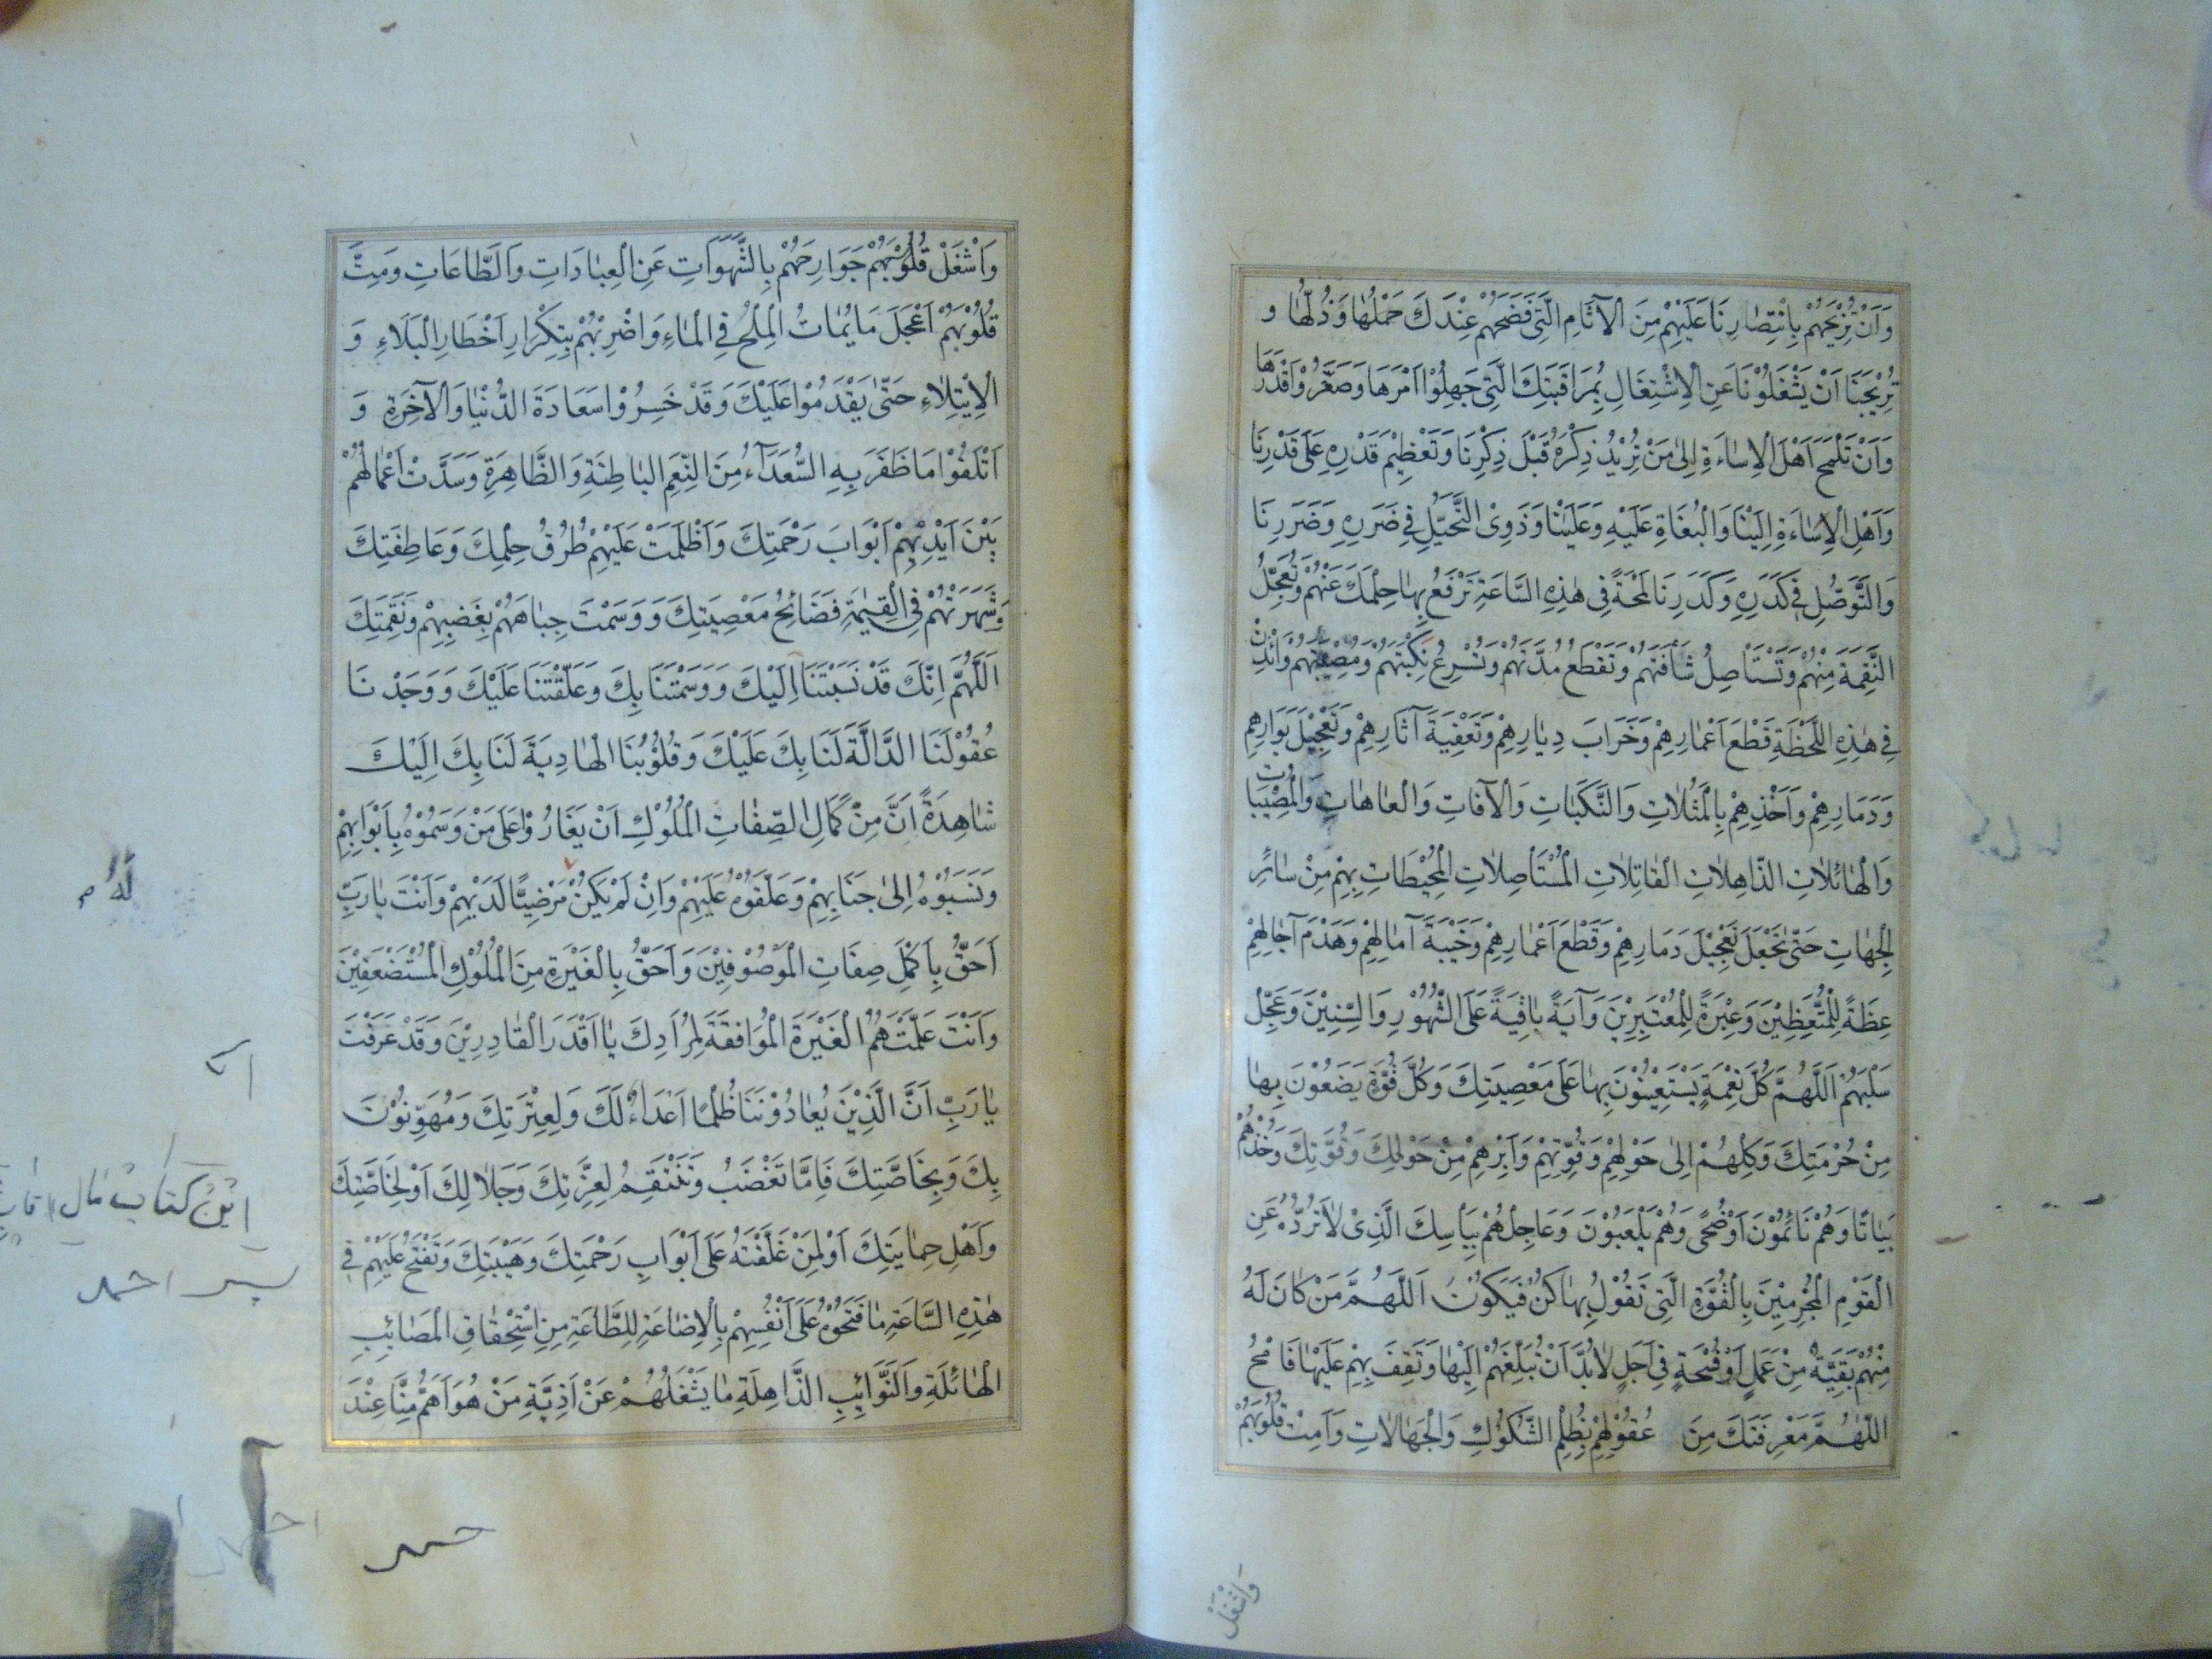 وَاَنْ تُرِيْحَهُمْ بِانْتِصَارِنَا عَلَيْهِمْ مِنَ الْآثَامِ الَّتِى فَضَحَهُمْ عِنْدَكَ حَمْلُهَا وَذُلُّهَا و
تُرِيْحَنَا اَنْ يَشْغَلُوْنَا عَنِ الْاِشْتِغَالِ بِمُرَاقَبَتِكَ الَّتِى جَهِلُوْا اَمْرَهَا وَصَغَّرُوْا قَدْرَهَا
وَاَنْ تَلْمَحَ اَهْلَ الْاِسَاءَةِ اِلىٰ مَنْ تُرِيْدُ ذِكْرَهُ قَبْلَ ذِكْرِنَا وَتَعْظِيْمَ قَدْرِهِ عَلَى قَدْرِنَا
وَاَهْلِ الْاِسَاءَةِ اِلَيْنَا وَالْبُغَاةِ عَلَيْهِ وَعَلَيْنَا وَذَوِى التَّحَيُّلِ فِى ضَرَرِهِ وَضَرَرِنَا
وَالتَّوَصُّلِ فِى كَدَرِهِ وَكَدَرِنَا لَمْحَةً فِى هٰذِهِ السَّاعَةِ تَرْفَعُ بِهَا حِلْمَكَ عَنْهُمْ وَتُعَجِّلُ
النَّقِمَةَ مِنْهُمْ وَتَسْتَأْصِلُ شَأْفَتَهُمْ وَتَقْطَعُ مُدَّتَهُمْ وَتُسْرِعُ نَكْبَتَهُمْ وَمُصِيْبَتَهُمْ وَائْذَنْ
فِى هٰذِهِ اللَّحْظَةِ قَطْعَ اَعْمَارِهِمْ وَخَرَابَ دِيَارِهِمْ وَتَعْفِيَةَ آثَارِهِمْ وَتَعْجِيْلَ بَوَارِهِمْ
وَدَمَارِهِمْ وَاَخْذِهِمْ بِالْمَثُلَاتِ وَالنَّكَبَاتِ وَالْآفَاتِ وَالْعَاهَاتِ وَالْمُصِيْبَات
وَالْهَائِلَاتِ الذَّاهِلَاتِ الْقَاتِلَاتِ الْمُسْتَأْصِلَاتِ الْمُحِيْطَاتِ بِهِمْ مِنْ سَائِرِ
الْجِهَاتِ حَتّىٰ تَجْعَلَ تَعْجِيْلَ دَمَارِهِمْ وَقَطْعَ اَعْمَارِهِمْ وَخَيْبَةَ آمَالِهِمْ وَهَدْمَ آجَالِهِمْ
عِظَةً لِلْمُتَّعِظِيْنَ وَعِبْرَةً لِلْمُعْتَبِرِيْنَ وَآيَةً بَاقِيَةً عَلَى الشُّهُوْرِ وَالسِّنِيْنَ وَعَجِّلْ
سَلْبَهُمْ اَللّٰهُمَّ كُلَّ نِعْمَةٍ يَسْتَعِيْنُوْنَ بِهَا عَلَى مَعْصِيَتِكَ وَكُلَّ قُوَّةٍ يَضَعُوْنَ بِهَا
مِنْ حُرْمَتِكَ وَكِلْهُمْ اِلىٰ حَوْلِهِمْ وَقُوَّتِهِمْ وَاَبْرِهِمْ مِنْ حَوْلِكَ وَقُوَّتِكَ وَخُذْهُمْ
بَيَاتًا وَهُمْ نَائِمُوْنَ اَوْ ضُحًى وَهُمْ يَلْعَبُوْنَ وَعَاجِلْهُمْ بِبَأْسِكَ الَّذِىْ لَا تَرُدُّهُ عَنِ
الْقَوْمِ الْمُجْرِمِيْنَ بِالْقُوَّةِ الَّتِى تَقُوْلُ بِهَا كُنْ فَيَكُوْنُ اَللّٰهُمَّ مَنْ كَانَ لَهُ
مِنْهُمْ بَقِيَّةٌ مِنْ عَمَلٍ اَوْ فُسْحَةٍ فِى اَجَلٍ لَا بُدَّ اَنْ تُبَلِّغَهُمْ اِلَيْهَا وَتَقِفَ بِهِمْ عَلَيْهَا فَامْحُ
اللّٰهُمَّ مَعْرِفَتَكَ مِنَ عُقُوْلِهِمْ بِظُلَمِ الشُّكُوْكِ وَالْجَهَالَاتِ وَاَمِتْ قُلُوْبَهُمْ
وَاشْغَلْ
وَاشْغَلْ قُلُوْبَهُمْ جَوَارِحَهُمْ بِالشَّهَوَاتِ عَنِ الْعِبَادَاتِ وَالطَّاعَاتِ وَمِتَّ
قُلُوْبَهُمْ اَعْجَلَ مَا يُمَاتُ الْمِلْحُ فِى الْمَاءِ وَاضْرِبْهُمْ بِتِكْرَارِ اَخْطَارِ الْبَلَاءِ وَ
الْاِبْتِلَاءِ حَتّىٰ يَقْدَمُوْا عَلَيْكَ وَقَدْ خَسِرُوْا سَعَادَةَ الدُّنْيَا وَالْآخِرَةِ وَ
اَتْلَفُوْا مَا ظَفَرَ بِهِ السُّعَدَآءُ مِنَ النِّعَمِ الْبَاطِنَةِ وَالظَّاهِرَةِ وَسَدَّتْ اَعْمَالُهُمْ
بَيْنَ اَيْدِيْهِمْ اَبْوَابَ رَحْمَتِكَ وَاَظْلَمَتْ عَلَيْهِمْ طُرُقُ حِلْمِكَ وَعَاطِفَتِكَ
وَشَهَرَتْهُمْ فِى الْقِيٰمَةِ فَضَائِحُ مَعْصِيَتِكَ وَوَسَمْتَ جِبَاهَهُمْ بِغَضَبِهِمْ وَنَقِمَتِكَ
اَللّٰهُمَّ اِنَّكَ قَدْ نَسَبْتَنَا اِلَيْكَ وَوَسَمْتَنَا بِكَ وَعَلَّقْتَنَا عَلَيْكَ وَوَجَدْنَا
عُقُوْلَنَا الدَّالَّةَ لَنَا بِكَ عَلَيْكَ وَقُلُوْبُنَا الْهَادِيَةَ لَنَا بِكَ اِلَيْكَ
شَاهِدَةً اَنَّ مِنْ كَمَالِ الصِّفَاتِ الْمُلُوْكِ اَنْ يَغَارُوْا عَلَى مَنْ وَسَمُوْهُ بِاَبْوَابِهِمْ
وَنَسَبُوْهُ اِلىٰ جَنَابِهِمْ وَعَلَّقُوْهُ عَلَيْهِمْ وَاِنْ لَمْ يَكُنْ مَرْضِيًّا لَدَيْهِمْ وَاَنْتَ يَا رَبِّ
اَحَقُّ بِاَكْمَلِ صِفَاتِ الْمَوْصُوْفِيْنَ وَاَحَقُّ بِالْغَيْرَةِ مِنَ الْمُلُوْكِ الْمُسْتَضْعَفِيْنَ
وَاَنْتَ عَلَّمْتَهُمُ الْغَيْرَةَ الْمُوَافِقَةَ لِمُرَادِكَ يَا اَقْدَرَ الْقَادِرِيْنَ وَقَدْ عَرَفْتَ
يَا رَبِّ اَنَّ الَّذِيْنَ يُعَادُوْنَنَا ظُلْمًا اَعْدَاءٌ لَكَ وَلِعِتْرَتِكَ وَمُهَوِّنُوْنَ
بِكَ وَبِخَاصَّتِكَ فَاِمَّا تَغْضَبُ وَتَنْتَقِمُ لِعِزَّتِكَ وَجَلَالِكَ اَوْ لِخَاصَّتِكَ
وَاَهْلِ حِمَايَتِكَ اَوْ لِمَنْ عَلَّقْتَهُ عَلَى اَبْوَابِ رَحْمَتِكَ وَهَيْبَتِكَ وَتَفْتَحُ عَلَيْهِمْ فِى
هٰذِهِ السَّاعَةِ مَا فَتَحُوْهُ عَلَى اَنْفُسِهِمْ بِالْاِضَاعَةِ لِلطَّاعَةِ مِنِ اسْتِحْقَاقِ الْمَصَائِبِ
الْهَائِلَةِ وَالنَّوَائِبِ الذَّاهِلَةِ مَا يَشْغَلُهُمْ عَنْ اَذِيَّةِ مَنْ هُوَ اَهَمُّ مِنَّا عِنْدَ
لَهُ م
این کتاب مال
پسر احمد
احمد
حمد